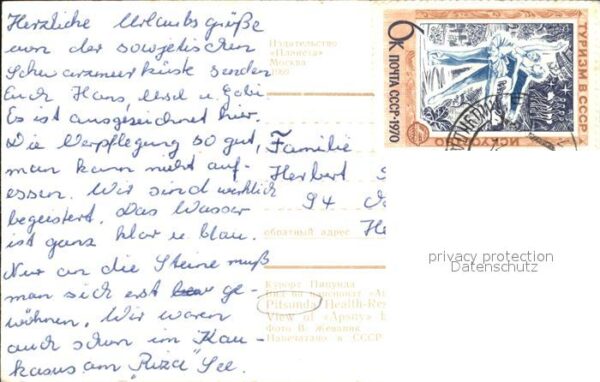 Herzliche Urlaubsgrüße
von der sowjetischen
Schwarzmeerküste senden
Euch Hans, Ursel u. Gabi.
Es ist ausgezeichnet hier.
Die Verpflegung so gut,
man kann nicht auf-
essen. Wir sind wirklich
begeistert. Das Wasser
ist ganz klar u. blau.
Nur an die Steine muß
man sich erst ge-
wöhnen. Wir waren
auch schon im Kau-
kasus am "Riza" See.
Издательство
«Планета»
Москва
Familie
Herbert
94
обратный адрес
Курорт Пицунда
Вид на пансионат
Pitsunda Health-Re
View of «Apsny»
Фото В. Жеванна
Напечатано в СССР
6 К
ПОЧТА СССР·1970
ТУРИЗМ В СССР
ИСКУССТВО
privacy protection
Datenschutz